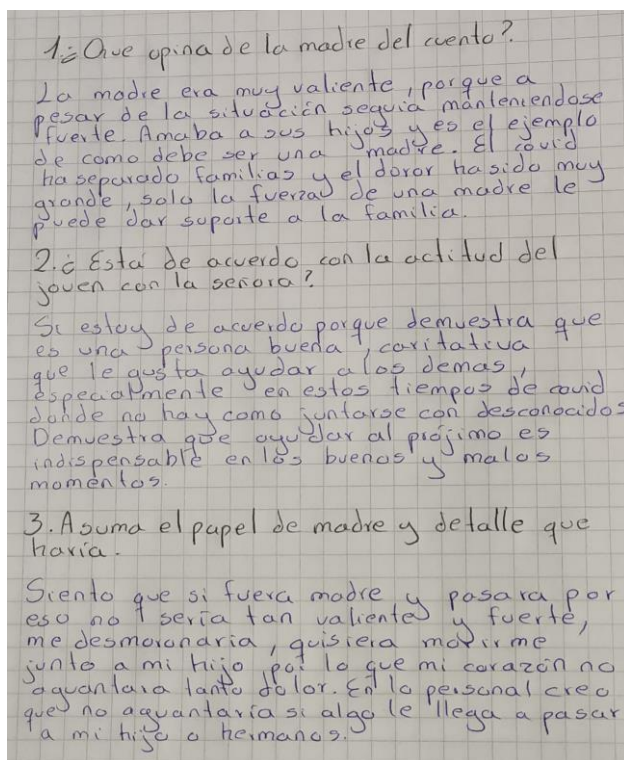 1.¿Que opina de la madre del cuento?
La madre era muy valiente, porque a
pesar de la situación seguia manteniendose
fuerte. Amaba a sus hijos y es el ejemplo
de como debe ser una madre. El covid
ha separado familias y el doror ha sido muy
grande, solo la fuerza de una madre le
puede dar soporte a la familia.
2.¿Está de acuerdo con la actitud del
joven con la señora?
Si estoy de acuerdo porque demuestra que
es una persona buena, caritativa
que le gusta ayudar a los demas,
especialmente en estos tiempos de covid
donde no hay como juntarse con desconocidos
Demuestra que ayudar al prójimo es
indispensable en los buenos y malos
momentos.
3. Asuma el papel de madre y detalle que
haria.
Siento que si fuera madre y pasara por
eso no seria tan valiente y fuerte,
me desmoronaria, quisiera morirme
junto a mi hijo por lo que mi corazón no
aguantara tanto dolor. En lo personal creo
que no aguantaría si algo le llega a pasar
a mi hijo o hermanos.